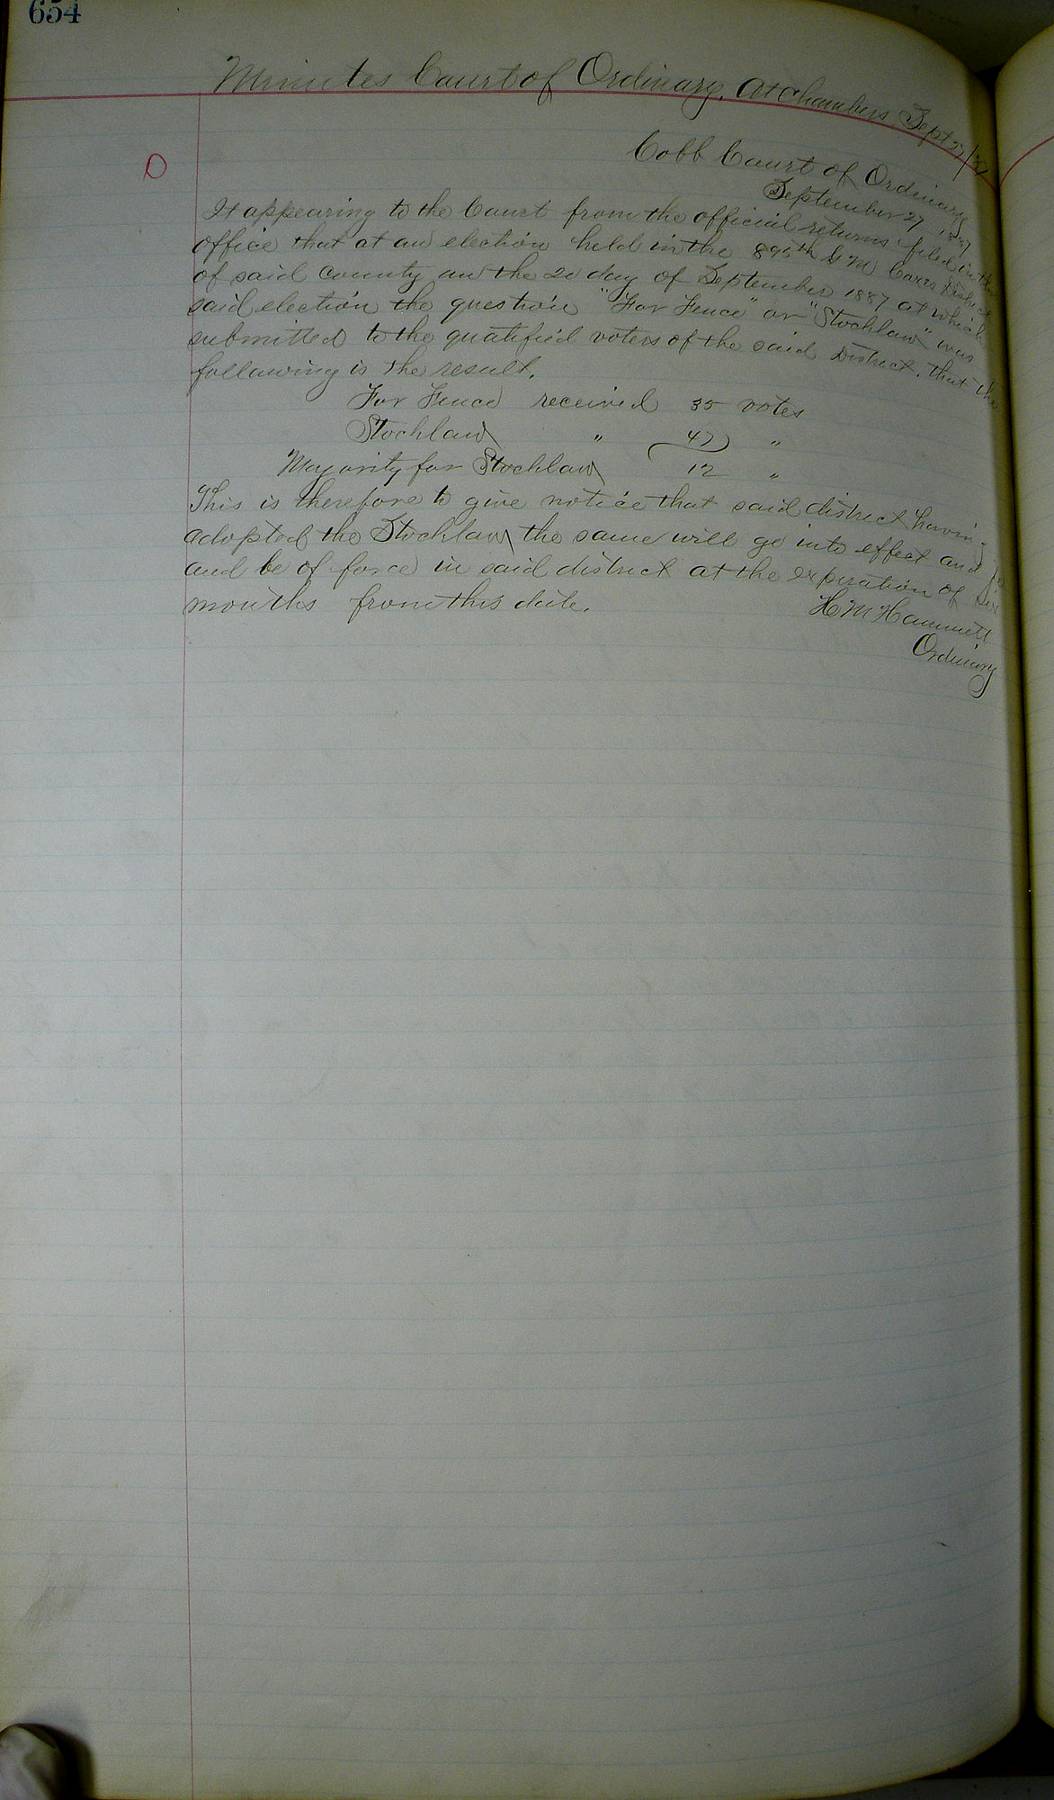 654
Minutes Court of Ordinary. At Chambers Sept 27/87
D
Cobb Court of Ordinary
September 27 1887
It appearing to the Court from the official returns filed in the
office that at an election held in the 895th G M Cox District
of said County on the 20 day of September 1887 at which
said election the question "For Fence" or "Stocklaw" was
submitted to the qualified voters of the said District. that the
following is the result.
For Fence received 35 votes
Stocklaw " 47 "
Majority for Stocklaw 12 "
This is therefore to give notice that said district having
adopted the Stocklaw the same will go into effect and
and be of force in said district at the expiration of six
months from this date.
H M Hammett
Ordinary